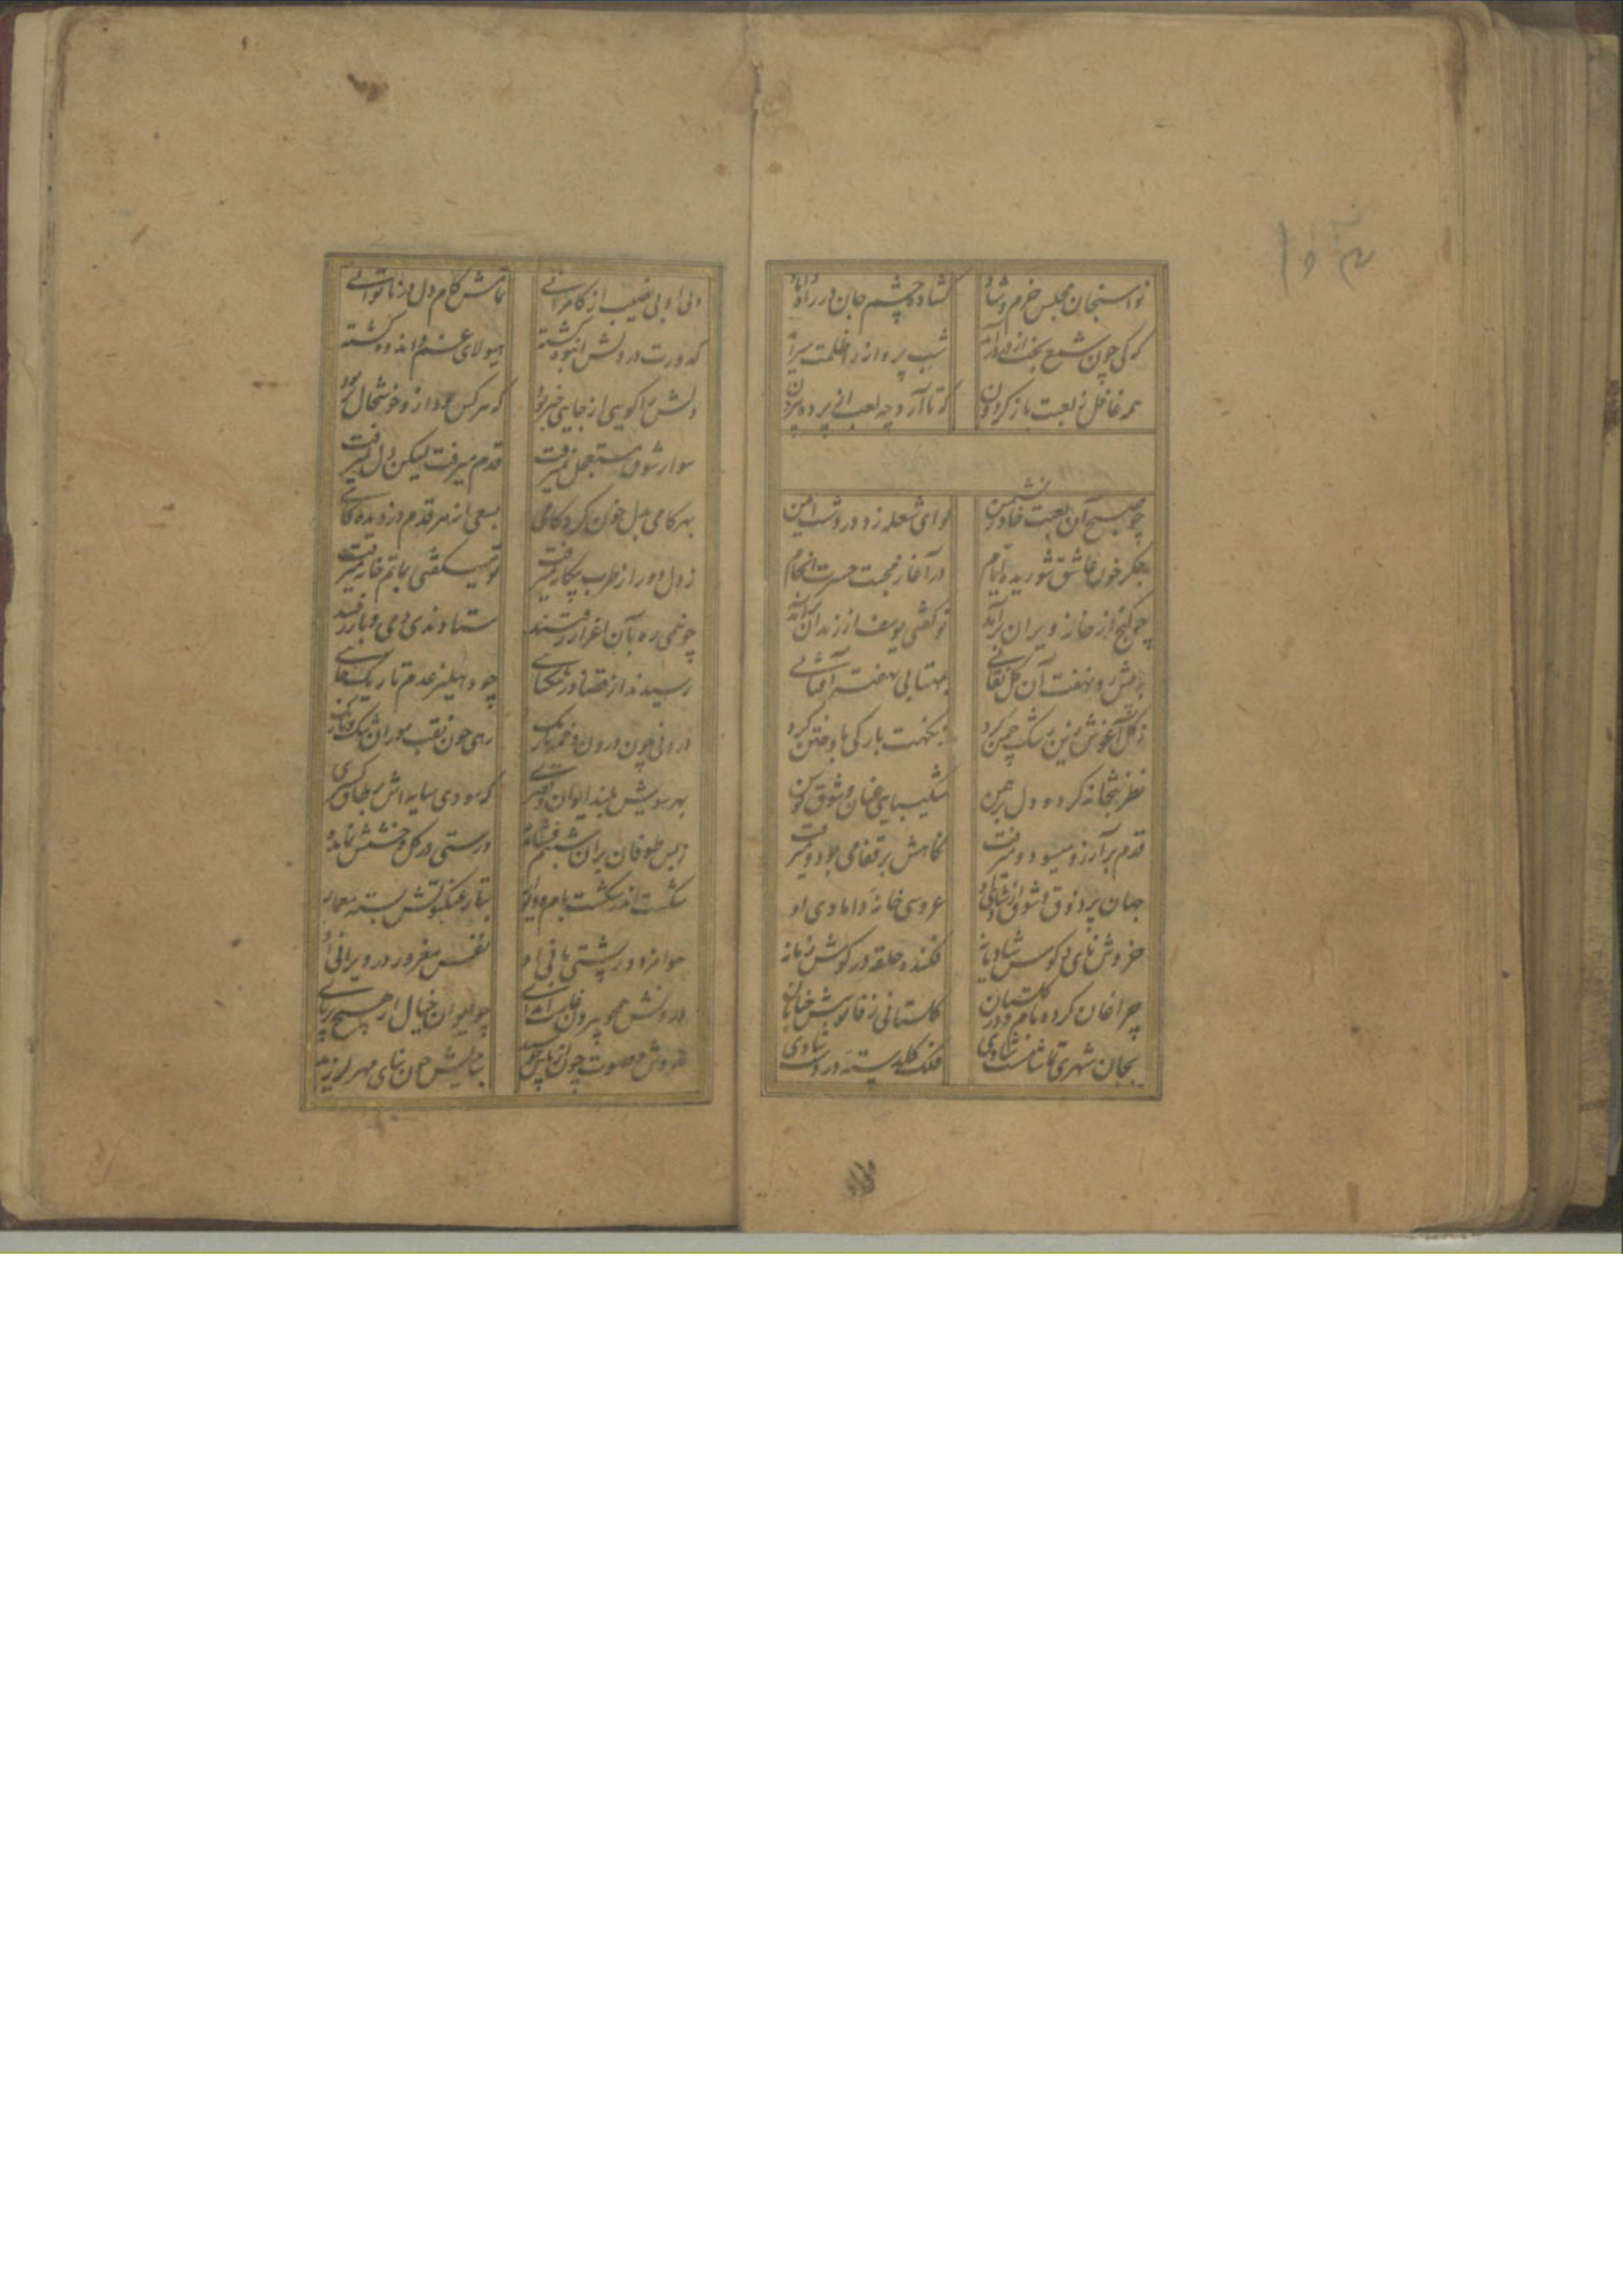 نواسنجان مجلس خرم و شاد
کشاده چشم جان در راه داماد
که کی چون شمع بخت از در درآید
شب پروانه را ظلمت سرآید
همه غافل ز لعبت باز کردون
که تا آرد چه لعب از پرده بیرون
چو صبح آن لعبت خاور نشیمن
لوای شعله زد در دشت ایمن
جکر خون عاشق شوریده ایام
در آغاز محبت حسرت انجام
چو کنج از خانه ویران برآمد
تو کفتی یوسف از زندان برآمد
نهفت آن کل نقابی
بمهتابی نهفت آفتابی
ز کل آغوش زین رشک چمن کرد
بنکهت بارکی باد ختن کرد
نظر بتخانه کرد و دل برهمن
شکیبایی عنان و شوق توسن
قدم بر آرزو میسود و میرفت
نکاهش بر قفا می بود و میرفت
جهان پر ذوق و شوق از شادی او
عروسی خانه دامادی او
خروش نای و کوس شادیانه
فکنده حلقه در کوش زمانه
چراغان کرده بام و در کلستان
کلستانی ز فانوسش خیابان
بجان شهری تماشامست شادی
فلک کلدسته در دست شادی
ولی او بی نصیب از کامرانی
تمامش کام دل در ناتوانی
کدورت در دلش انبوه کشته
هیولای غم و اندوه کشته
دلش را کویی از جایی خبر بود
که هر کس خوشحال
سوار شوق مستعجل نمیرفت
قدم میرفت لیکن دل نمیرفت
بهر کامی بدل خون کرد کامی
بسعی از هر قدم دزدیده کامی
ز دل دور از طرب بیکار میرفت
تو میکفتی بماتم خانه میرفت
چو نیمی ره بآن اغزاز رفتند
ستادندی دمی و باز رفتند
رسیدند از قضا در تنکنایی
چو دهلیز عدم تاریک جایی
درازی چون درون
رهی چون نقب موران تنک و تاریک
بهر سویش بلند ایوان و قصری
که سودی سایه اش بر طاق کسری
ز بس طوفان بر آن شبنم فشانده
درستی در کل و خشتش نمانده
شکست اندر شکست بام و دیوار
بتار عنکبوتش بسته معمار
هوا مزدور پشتی بانی او
نفس مغرور در ویرانی او
درونش همچو بیرون
چو ایوان خیال از هیچ بر پای